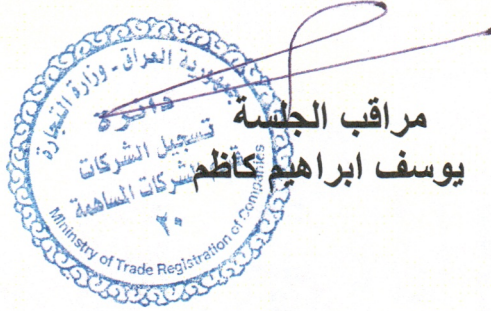 مراقب الجلسة
يوسف ابراهيم كاظم
جمهورية العراق - وزارة التجارة
دائرة
تسجيل الشركات
الشركات المساهمة
٢٠
Ministry of Trade Registration of Companies